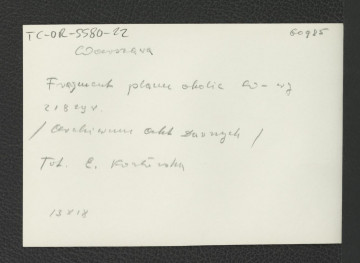 TC-OR-5580-22
60985
Warszawa
Fragment planu okolic W-wy
z 1829 r.
/ Archiwum Akt Dawnych /
Fot. E. Kozłowska
13 x 18